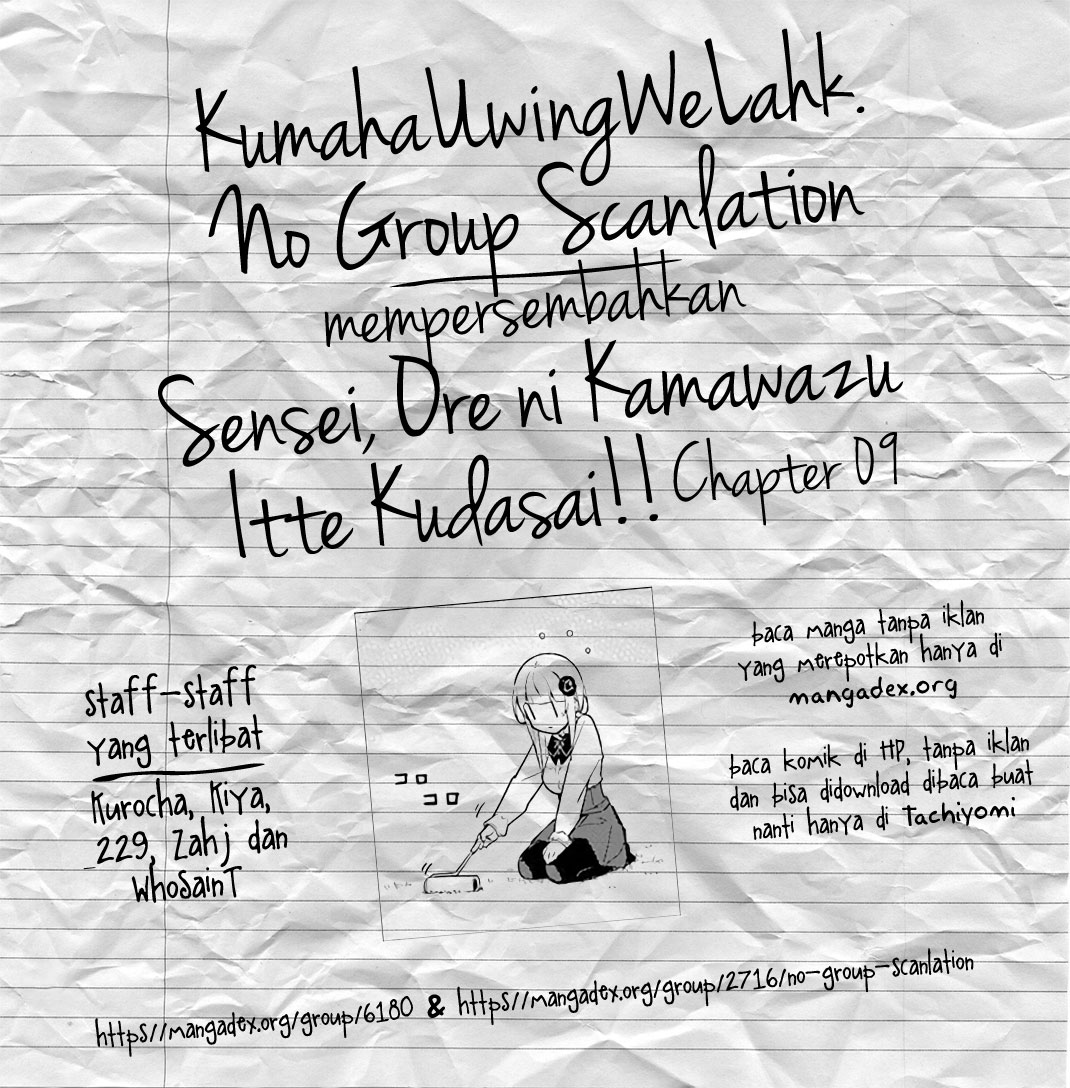 KumahaUwingWeLahk.
No Group Scanlation
mempersembahkan
Sensei, Ore ni Kamawazu
Itte Kudasai!! Chapter 09
staff-staff
yang terlibat
Kurocha, Kiya,
_229, Zahj dan
WhoSainT
コロ
コロ
baca manga tanpa iklan
yang merepotkan hanya di
mangadex.org
baca komik di HP, tanpa iklan
dan bisa didownload dibaca buat
nanti hanya di Tachiyomi
https//mangadex.org/group/6180 & https//mangadex.org/group/2716/no-group-scanlation